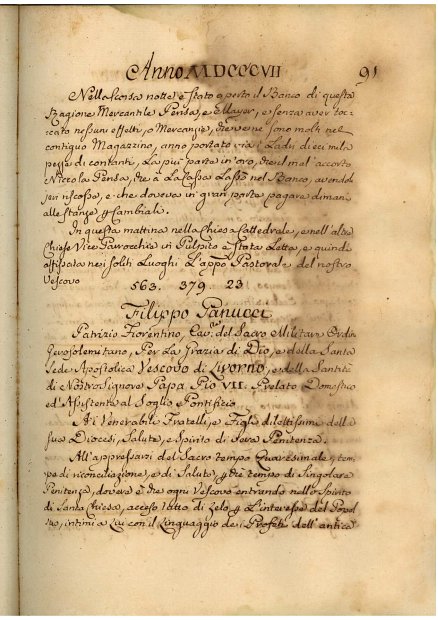 Anno MDCCCVII 91
Nella scorsa notte è stato aperto il Banco di questa
Ragione Mercantile Pensa, e senza aver toc-
cato nessuni effetti, o Mercanzie, che ve ne sono molti nel
contiguo Magazzino, anno portato via i Ladri dieci mila
pezze di contanti, La più parte in oro, che il mal'accorto
Niccola Pensa, che à La Cassa Lassò nel Banco, avendoli
jeri riscossi, e che doveva in gran parte pagare dimani
alle Stanze Cambiali.
In questa mattina nella Chiesa Cattedrale, e nell'altre
Chiese Vice Parrocchie in Pulpito è stata Letta, e quindi
affissata nei soliti Luoghi L'app.a Pastorale del nostro
Vescovo
563. 379. 23
Filippo Ganucci
Patrizio Fiorentino, Cav.re del Sacro Militare Ordine
Gerosolemitano, Per La Grazia di Dio, e della Santa
Sede Apostolica Vescovo di Livorno, e della Santità
di Nostro Signore Papa Pio VII. Prelato Domestico
ed'Assistente al Soglio Pontificio
Ai Venerabile Fratelli, e Figli dilettissimi della
sua Diocesi, Salute, e Spirito di Vera Penitenza.
All'appressarsi del Sacro tempo Quaresimale, tem-
po di riconciliazione, e di Salute, tempo di Singolare
Penitenza, dovere è che ogni Vescovo entrando nello Spirito
di Santa Chiesa, acceso tutto di Zelo L'interesse del Popo-
lo, intimi a Lui con il Linguaggio dei Profeti dell'antica